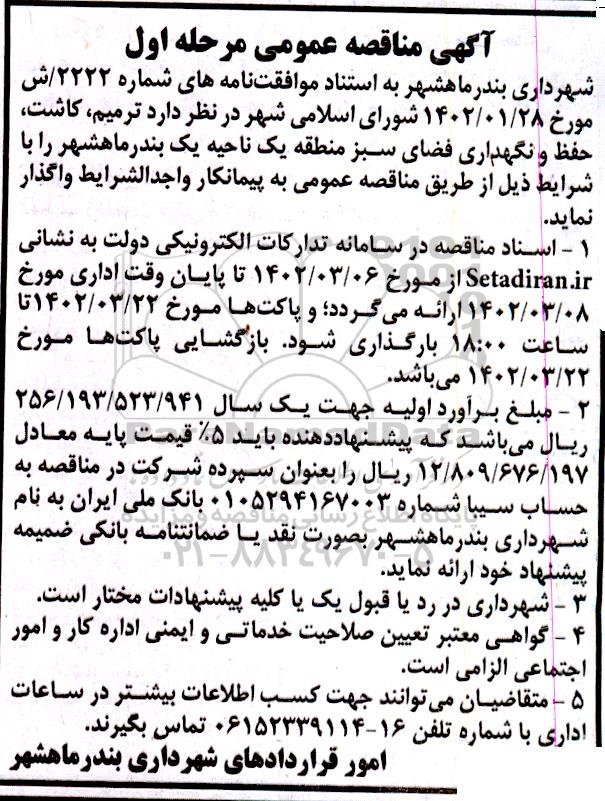 آگهی مناقصه عمومی مرحله اول
شهرداری بندرماهشهر به استناد موافقت‌نامه های شماره ۲۲۲۲/ش
مورخ ۱۴۰۲/۰۱/۲۸ شورای اسلامی شهر در نظر دارد ترمیم، کاشت،
حفظ و نگهداری فضای سبز منطقه یک ناحیه یک بندرماهشهر را با
شرایط ذیل از طریق مناقصه عمومی به پیمانکار واجدالشرایط واگذار
نماید.
۱ - اسناد مناقصه در سامانه تدارکات الکترونیکی دولت به نشانی
Setadiran.ir از مورخ ۱۴۰۲/۰۳/۰۶ تا پایان وقت اداری مورخ
۱۴۰۲/۰۳/۰۸ ارائه می‌گردد؛ و پاکت‌ها مورخ ۱۴۰۲/۰۳/۲۲تا
ساعت ۱۸:۰۰ بارگذاری شود. بازگشایی پاکت‌ها مورخ
۱۴۰۲/۰۳/۲۲ می‌باشد.
۲ - مبلغ برآورد اولیه جهت یک سال ۲۵۶/۱۹۳/۵۲۳/۹۴۱
ریال می‌باشد که پیشنهاددهنده باید ۵٪ قیمت پایه معادل
۱۲/۸۰۹/۶۷۶/۱۹۷ ریال را بعنوان سپرده شرکت در مناقصه به
حساب سیبا شماره ۰۱۰۵۲۹۴۱۶۷۰۰۳ بانک ملی ایران به نام
شهرداری بندرماهشهر بصورت نقد یا ضمانتنامه بانکی ضمیمه
پیشنهاد خود ارائه نماید.
۳ - شهرداری در رد یا قبول یک یا کلیه پیشنهادات مختار است.
۴ - گواهی معتبر تعیین صلاحیت خدماتی و ایمنی اداره کار و امور
اجتماعی الزامی است.
۵ - متقاضیان می‌توانند جهت کسب اطلاعات بیشتر در ساعات
اداری با شماره تلفن ۱۶-۰۶۱۵۲۳۳۹۱۱۴ تماس بگیرند.
امور قراردادهای شهرداری بندرماهشهر
پایگاه اطلاع رسانی مناقصه و مزایده
۰۲۱-۸۸۳۴۹۶۷۰-۵